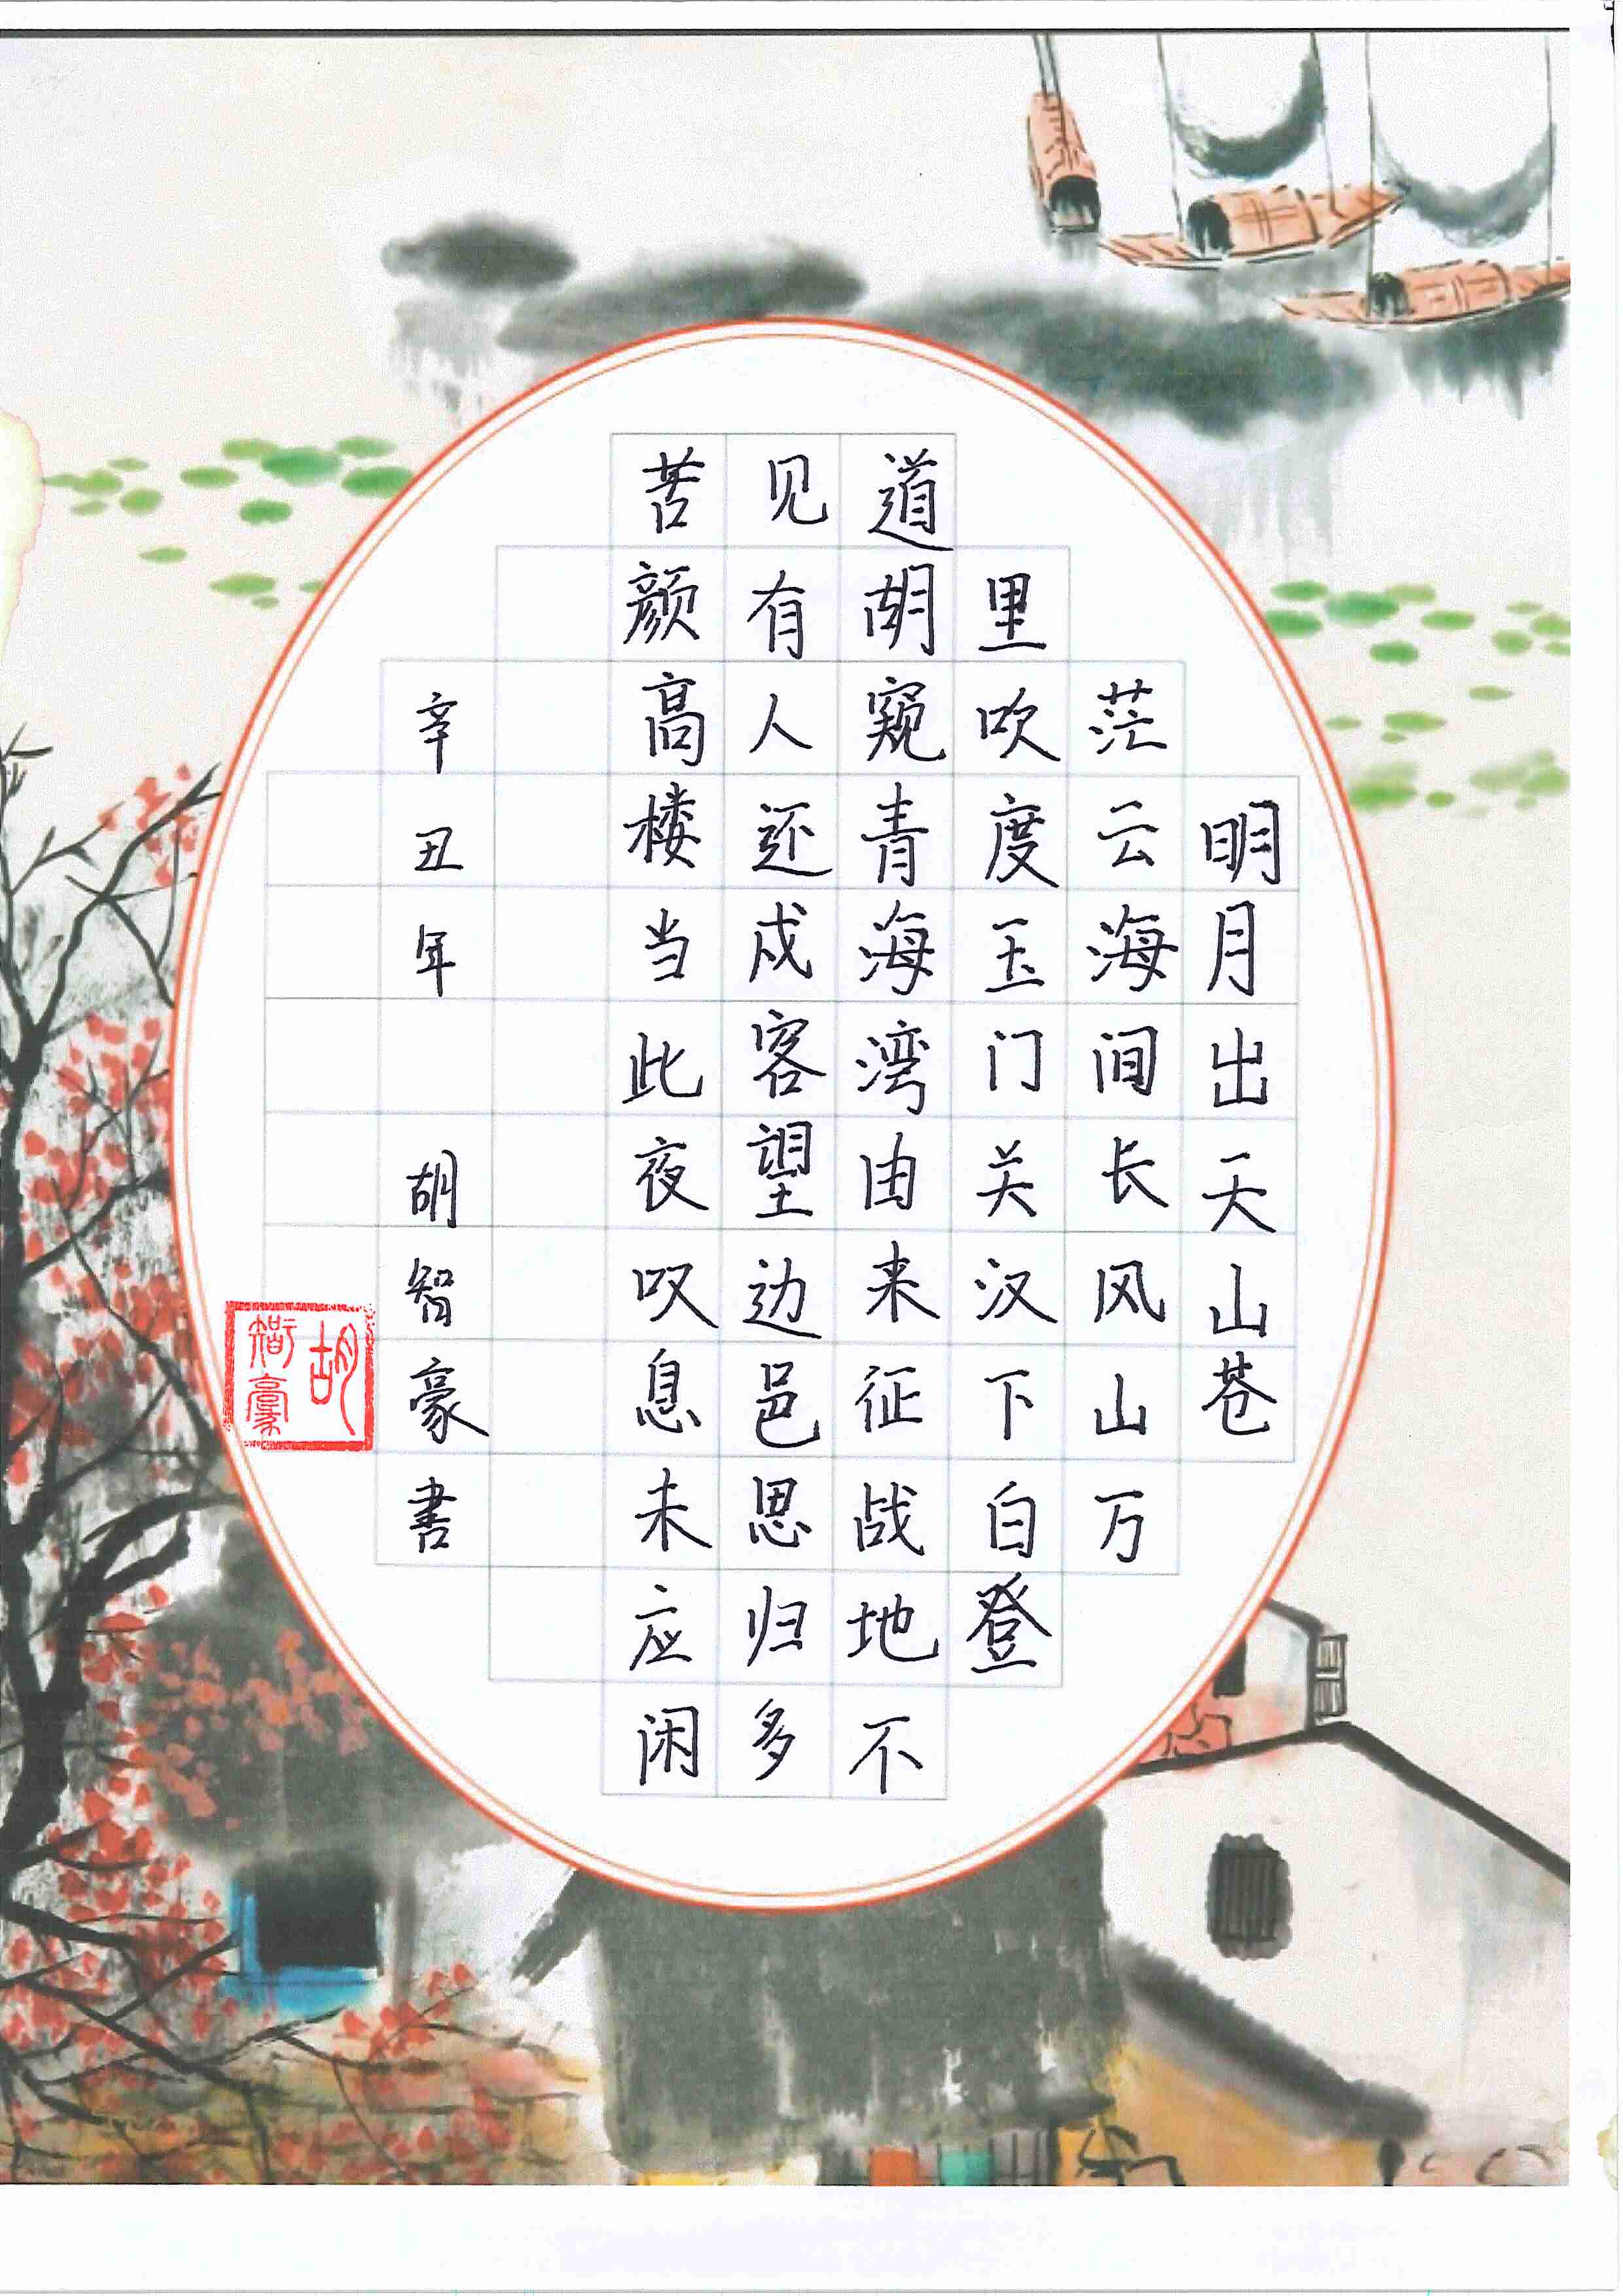 明月出天山苍
茫云海间长风山万
里吹度玉门关汉下白登
道胡窥青海湾由来征战地不
见有人还戍客望边邑思归多
苦颜高楼当此夜叹息未应闲
辛丑年 胡智豪書
胡智豪